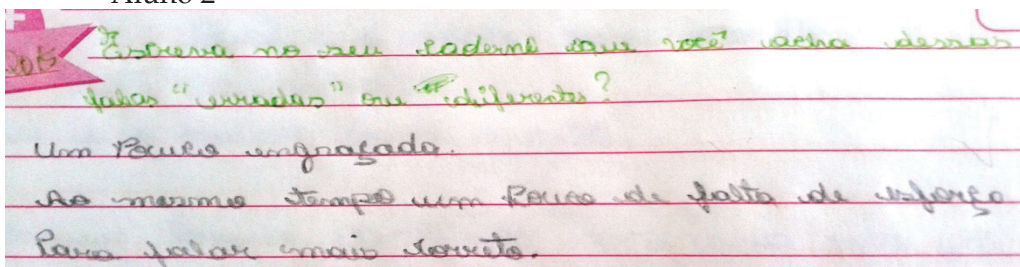 Aluno 2
Escreva no seu caderno que você acha dessas
falas "erradas" ou "diferentes?
Um Pouco engraçado.
Ao mesmo tempo um Pouco de falta de esforço
Para falar mais correto.